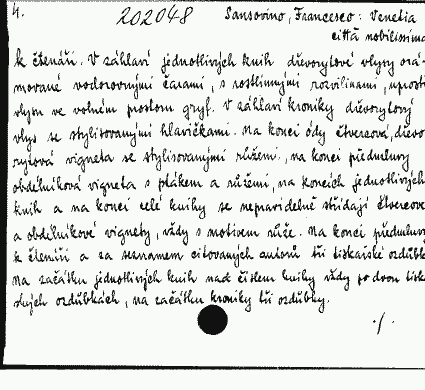 4. 202048 Sansovino, Francesco: Venetia
città nobilissima
k čtenáři. V záhlaví jednotlivých knih dřevorytové vlysy orá-
mované vodorovnými čarami, s rostlinnými rozvilinami, uprostř
vlysu ve volném prostoru gryf. V záhlaví kroniky dřevorytový
vlys se stylisovanými hlavičkami. Na konci ódy čtvercová, dřevo-
rytová vigneta se stylisovanými růžemi, na konci předmluvy
obdélníková vigneta s ptákem a růžemi, na koncích jednotlivých
knih a na konci celé knihy se nepravidelně střídají čtvercové
a obdélníkové vignety, vždy s motivem růže. Na konci předmluvy
k čtenáři a za seznamem citovaných autorů tři tiskařské ozdůbk
Na začátku jednotlivých knih nad číslem knihy vždy po dvou tiskař
ských ozdůbkách, na začátku kroniky tři ozdůbky.
./.